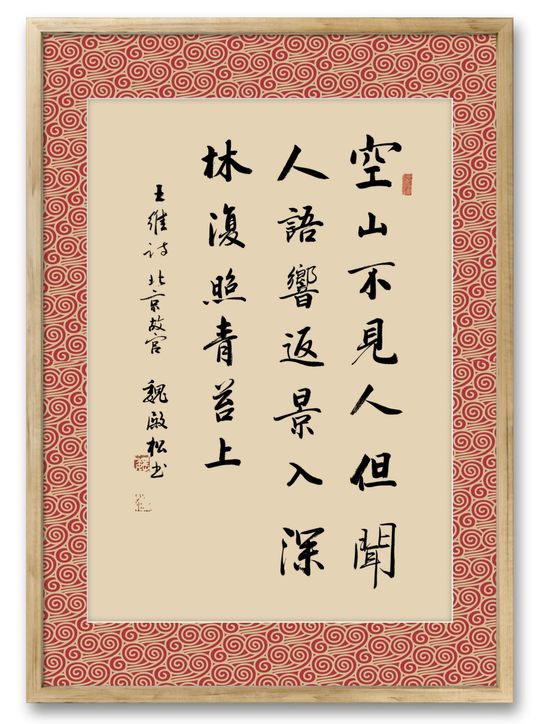 空山不見人但聞
人語響返景入深
林復照青苔上
王維詩北京故宮 魏啟松书